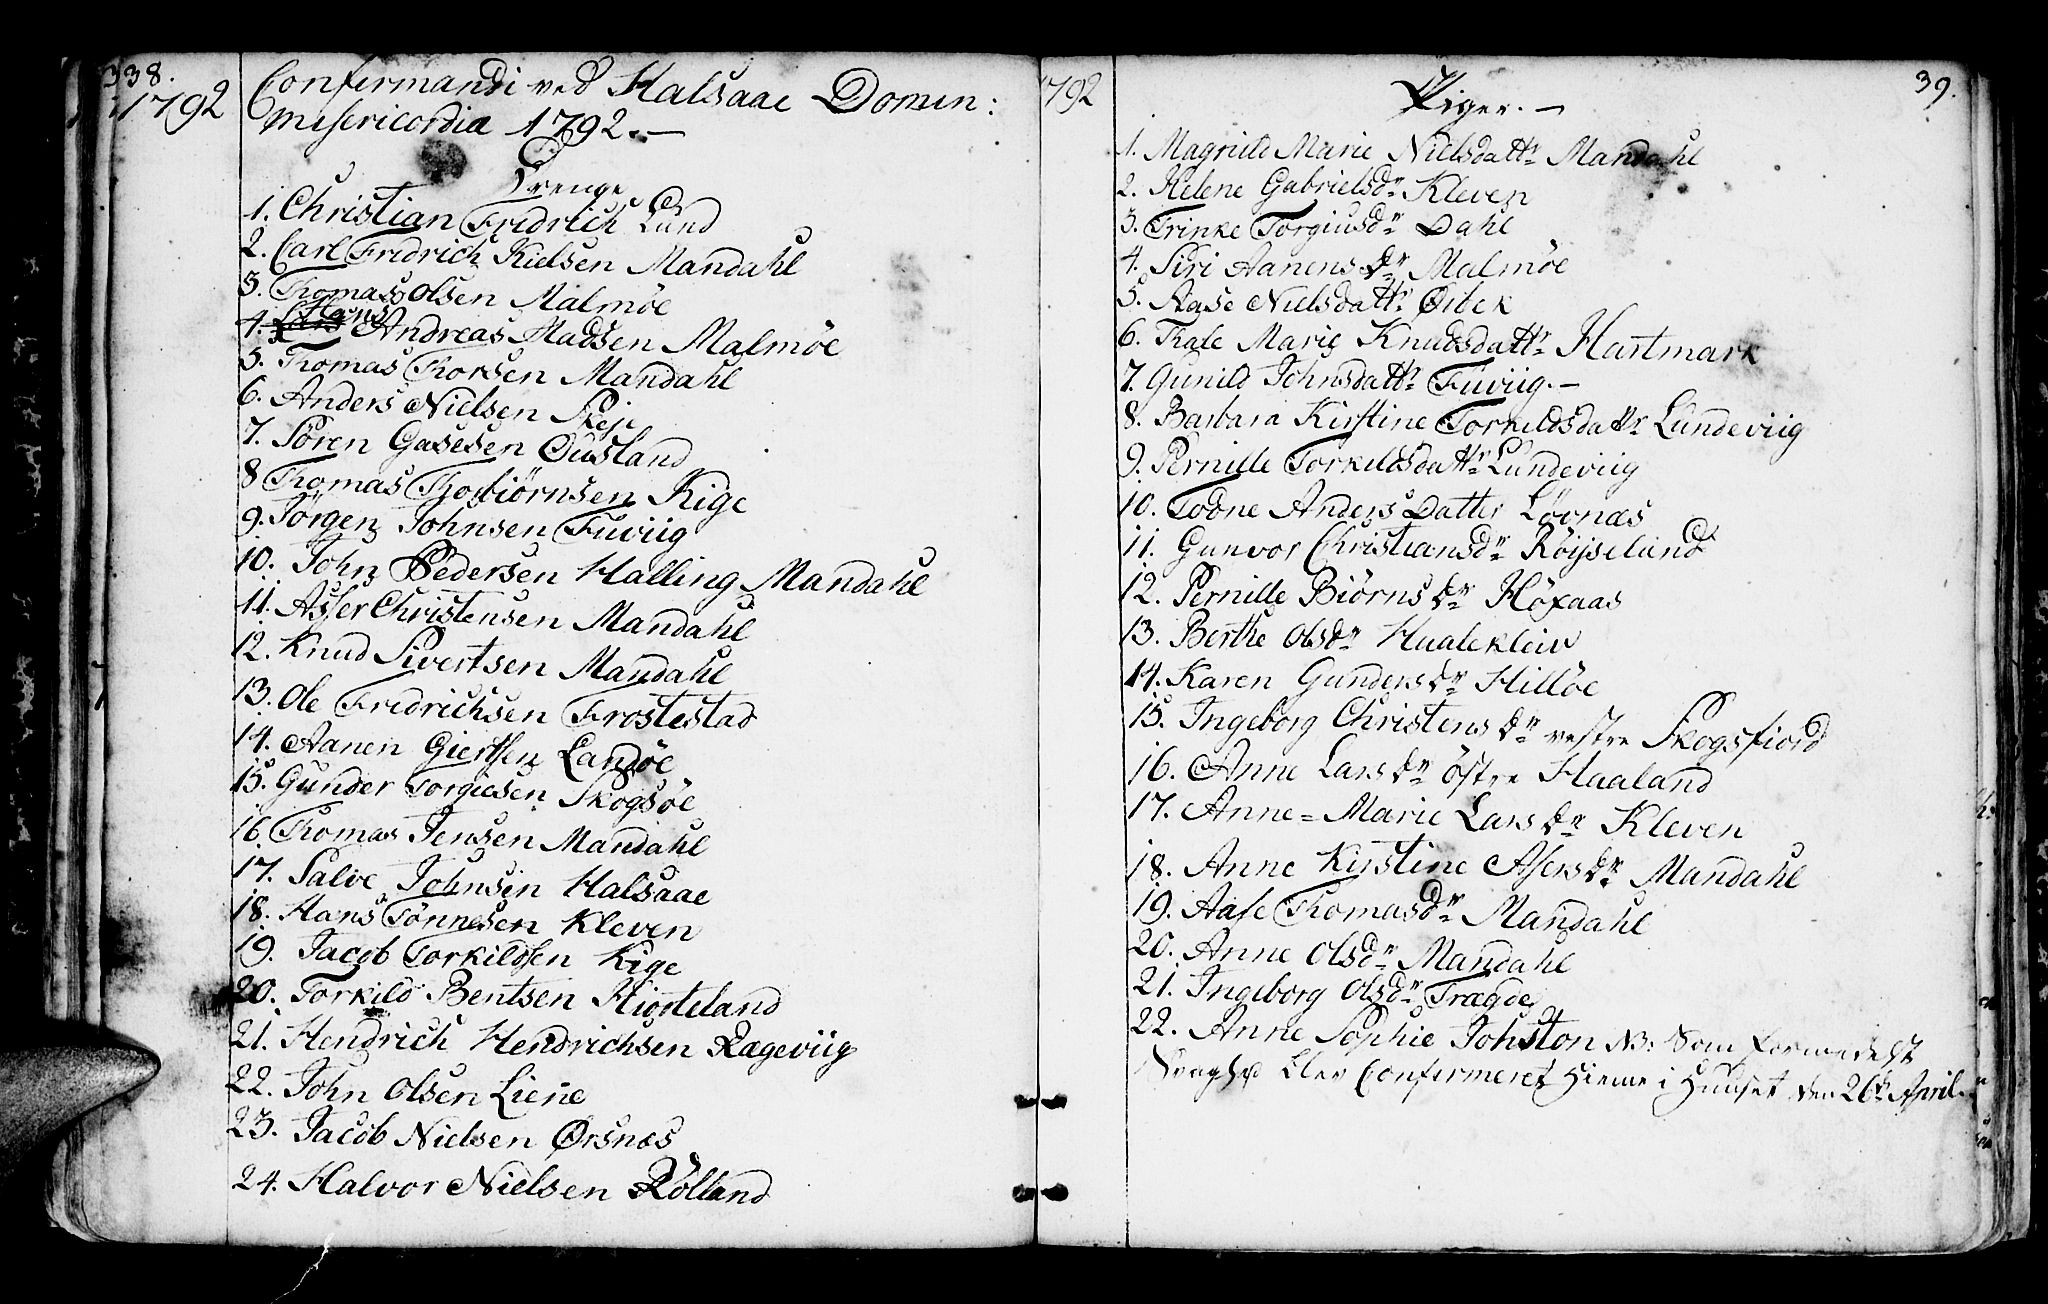 338.
1792
Confirmandi ved Halsaae Domin:
Misericordia 1792.-
Drenge
1. Christian Fridrich Lund
2. Carl Fridrich Kielsen Mandahl
3. Thomas Olsen Malmöe
4. Hans Andreas Madsen Malmöe
5. Thomas Thorsen Mandahl
6. Anders Nielsen Skeje
7. Sören Gasesen Ousland
8 Thomas Thorbiörnsen Kige
9. Jörgen Johnsen Fuviig
10. John Pedersen Halling Mandahl
11. Asser Christensen Mandahl
12. Knud Sivertsen Mandahl
13. Ole Fridrichsen Frostestad
14. Aanen Giertsen Landöe
15. Gunder Torgiesen Skogsöe
16. Thomas Jensen Mandahl
17. Salve Johnsen Halsaae
18. Hans Tönnesen Kleven
19. Jacob Torkildsen Kige
20. Torkild Bentsen Hiorteland
21. Hendrich Hendrichsen Rægeviig
22. John Olsen Liene
23. Jacob Nielsen Ørsnæs
24. Halvor Nielsen Rölland
1792
39.
Piger. -
1. Magnild Marie Nielsdattr Mandahl
2. Helene Gabrielsdr Kleven
3. Trinke Torgiusdr Dahl
4. Siri Aanensdr Malmöe
5. Aase Nielsdattr Øibek
6. Thale Marie Knudsdattr Hartmark
7. Gunild Johnsdattr Fuviig. -
8. Barbara Kirstine Torkildsdattr Lundeviig
9. Pernille Torkildsdattr Lundeviig
10. Todne Anders Datter Lövnæs
11. Gunvor Christiansdr Röijselund
12. Pernille Biörnsdr Höxaas
13. Berthe Olsdr Haaleklein
14. Karen Gundersdr Hillöe
15. Ingeborg Christensdr vestre Skogsfiord
16. Anne Larsdr östre Haaland
17. Anne=Marie Larsdr Kleven
18. Anne Kirstine Asersdr Mandahl
19. Aase Thomasdr Mandahl
20. Anne Olsdr Mandahl
21. Ingeborg Olsdr Trægde
22. Anne Sophie Johston NB: Som formedelst
Svaghed blev Confirmeret hieme i Huuset den 26de April.